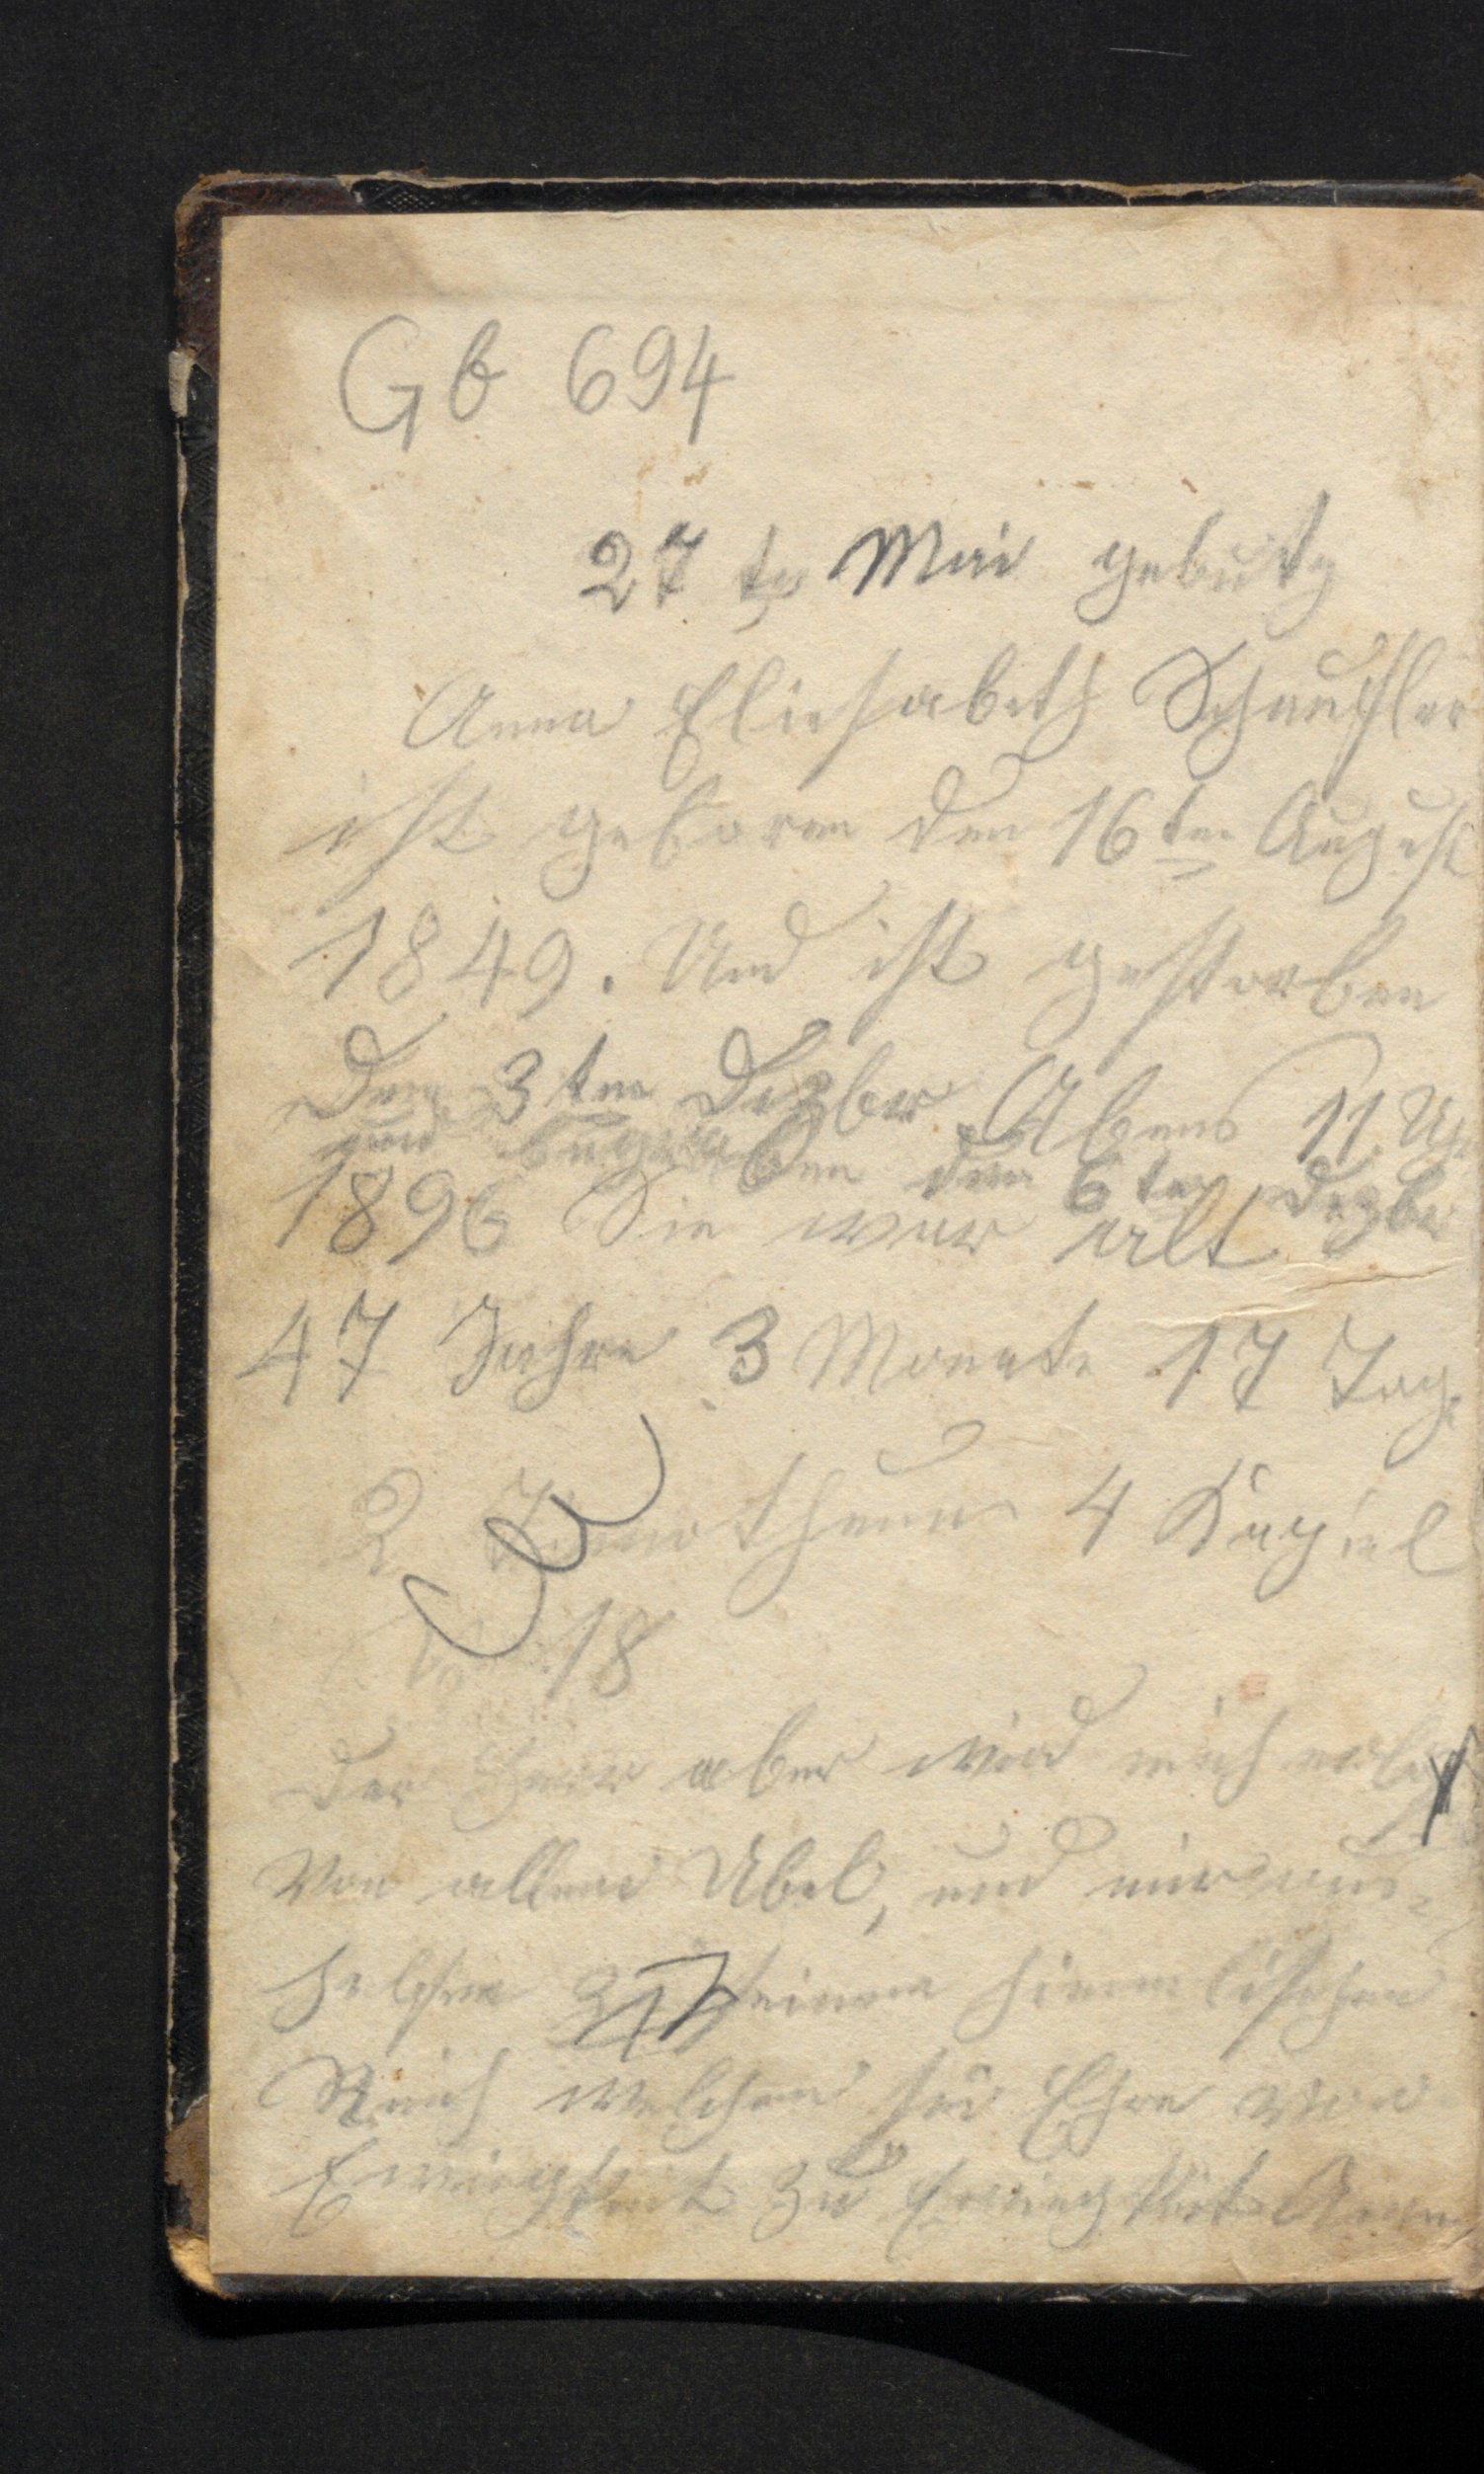 Gb 694
27 te Mai gebutz
Anna Eliesabeth Schaufler
ist geboren den 16ten August
1849. Und ist gestorben
Den 3ten Dezber Abens 11 Uh
und begraben den 6ten Dezbr
1896 Sie war alt
47 Jahre 3 Monate 17 Tag
2 Timotheus 4 Kapiel
18
Der Herr aber wird mich erlös
Von allem Übel, und mir aus-
helfen zu seinem himmlischen
Reich welchem sei Ehre von
Ewigkeit zu Ewigkeit Amen